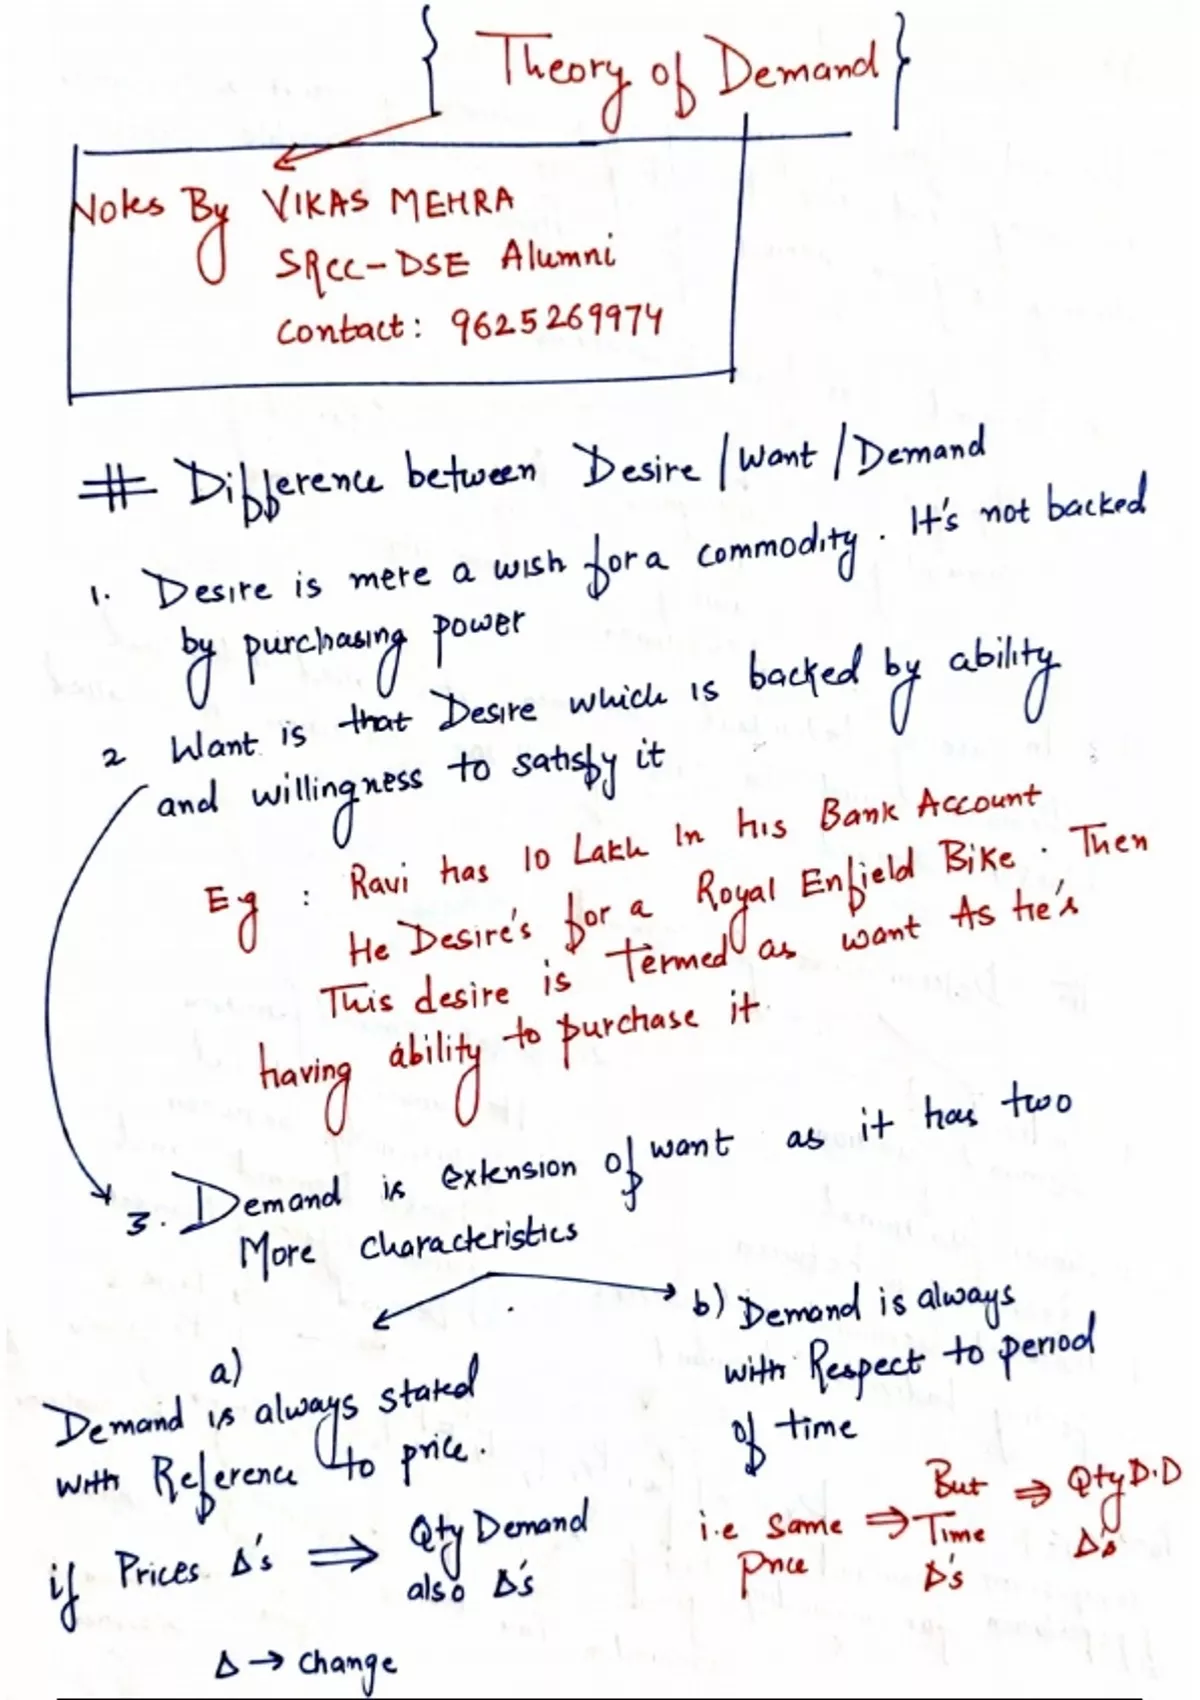 { Theory of Demand }
Notes By VIKAS MEHRA
SRCC-DSE Alumni
Contact: 9625269974
# Difference between Desire / Want / Demand
1. Desire is mere a wish for a commodity. It's not backed
by purchasing power
2 Want is that Desire which is backed by ability
and willingness to satisfy it
Eg : Ravi has 10 Lakh In his Bank Account
He Desire's for a Royal Enfield Bike. Then
This desire is termed as want As he's
having ability to purchase it.
3. Demand is extension of want as it has two
More characteristics
a)
Demand is always stated
with Reference to price.
if Prices Δ's ⇒ Qty Demand
also Δ's
Δ → change
b) Demand is always
with Respect to period
of time
i.e same price ⇒ But Time Δ's ⇒ Qty D.D Δ's